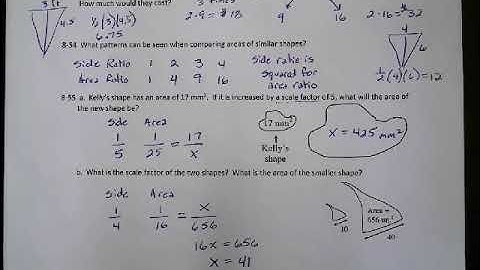 3 ft
How much would they cost?
4.5
½(3)(4.5)
6.75
2·9 = $18
9
16
2·16 = $32
4
6
½(4)(6)=12
8-54 What patterns can be seen when comparing areas of similar shapes?
Side Ratio 1 2 3 4
Area Ratio 1 4 9 16
Side ratio is
squared for
area ratio
8-55 a. Kelly's shape has an area of 17 mm². If it is increased by a scale factor of 5, what will the area of
the new shape be?
Side Area
1/5 1/25 = 17/x
17 mm²
Kelly's
shape
x = 425 mm²
b. What is the scale factor of the two shapes? What is the area of the smaller shape?
Side Area
1/4 1/16 = x/656
16x = 656
x = 41
10
Area =
656 un²
40